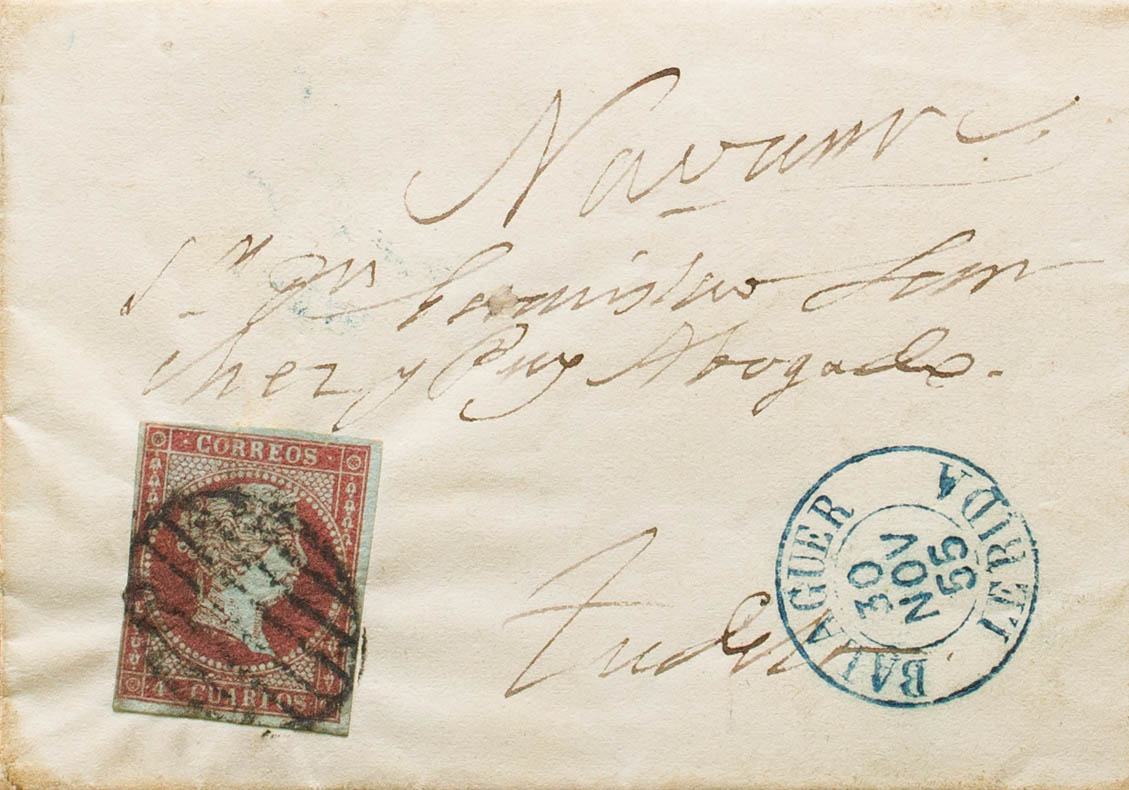 Navarra
Sr. Dn. Estanislao San
chez y Puy Abogado.
CORREOS
4 CUARTOS
Tudela
BALAGUER
LERIDA
30
NOV
55